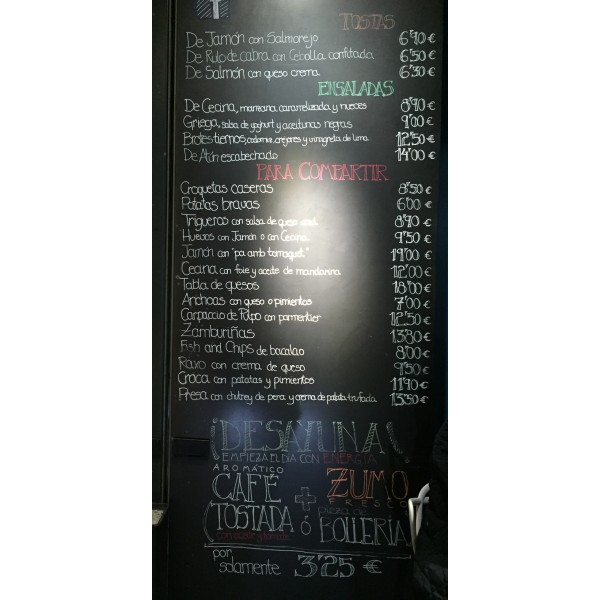 TOSTAS
De Jamón con Salmorejo 6'90 €
De Rulo de cabra con Cebolla confitada 6'50 €
De Salmón con queso crema 6'30 €
ENSALADAS
De Cecina, manzana caramelizada y nueces 8'90 €
Griega, salsa de yoghurt y aceitunas negras 9'00 €
Brotes tiernos, y vinagreta de lima 12'50 €
De Atún escabechado 14'00 €
PARA COMPARTIR
Croquetas caseras 8'50 €
Patatas bravas 6'00 €
Trigueros con salsa de queso azul 8'90 €
Huevos con Jamón o con Cecina 9'50 €
Jamón con "pa amb tomaquet" 19'00 €
Cecina con foie y aceite de mandarina 12'00 €
Tabla de quesos 18'00 €
Anchoas con queso o pimientos 7'00 €
Carpaccio de Pulpo con parmentier 12'50 €
Zamburiñas 13'80 €
Fish and Chips de bacalao 8'00 €
Raxo con crema de queso 9'50 €
Croca con patatas y pimientos 11'90 €
Presa con chutney de pera y crema de patata trufada 13'50 €
¡DESAYUNA!
EMPIEZA EL DIA CON ENERGÍA
AROMÁTICO
CAFÉ + ZUMO
FRESCO
TOSTADA ó pieza de BOLLERÍA
con aceite y tomate
por
solamente 3'25 €